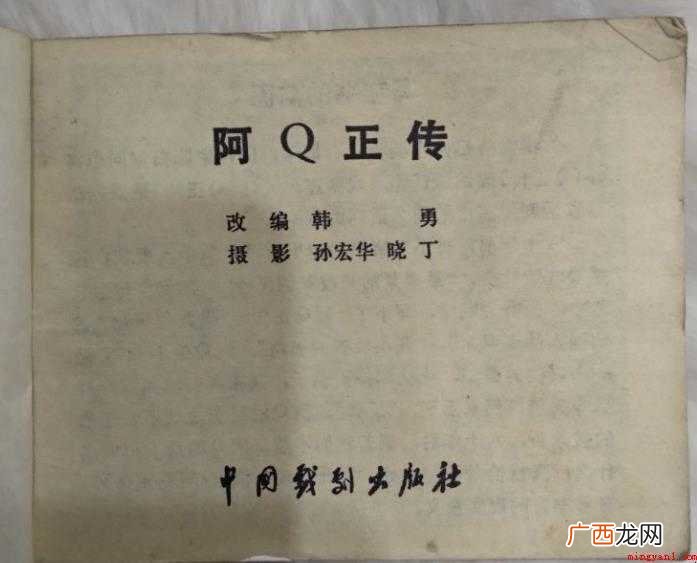 阿Q正传
改编 韩勇
摄影 孙宏华 晓丁
中国戏剧出版社
广西龙网
www.mingyan1.com